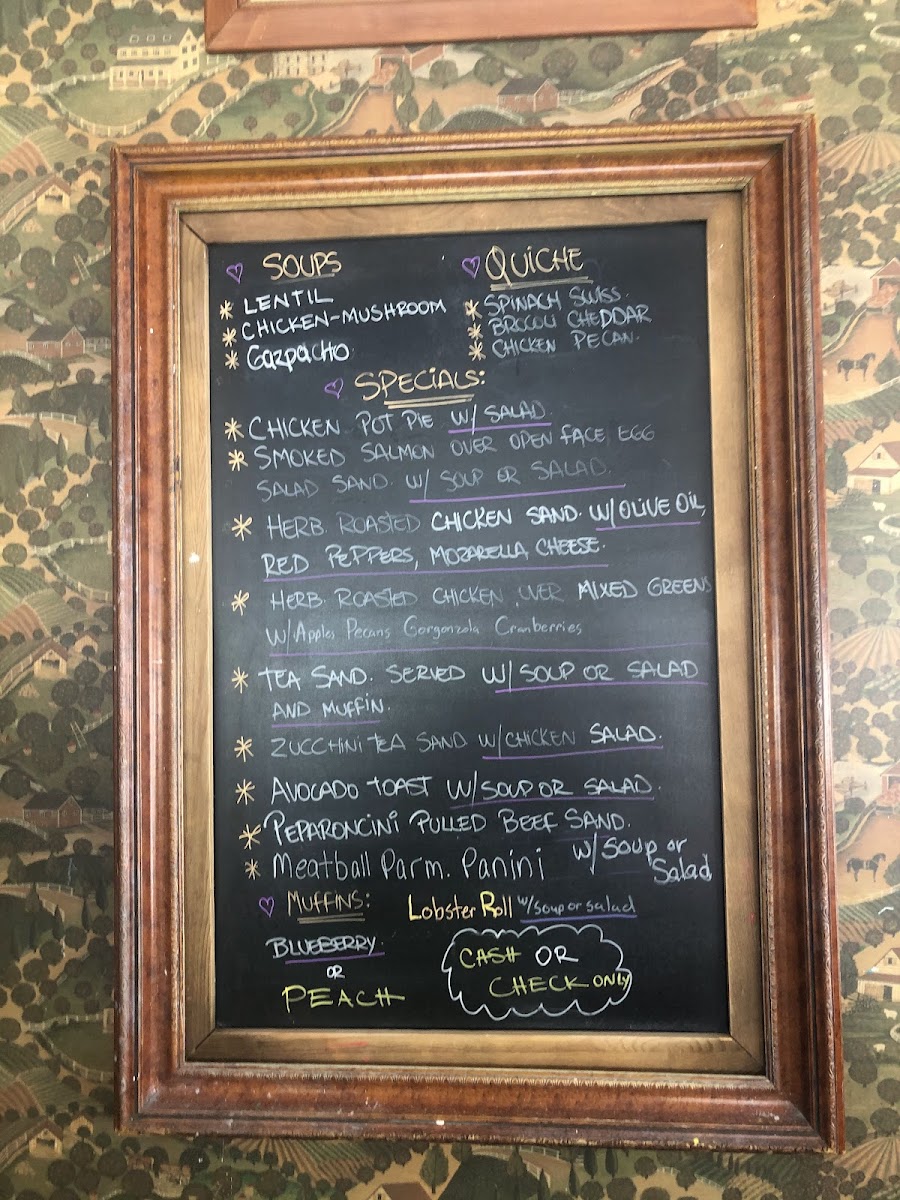 SOUPS
* LENTIL
* CHICKEN-MUSHROOM
* Gazpacho
QUICHE
* SPINACH SWISS.
* BROCOLI CHEDDAR
* CHICKEN PECAN.
SPECIALS:
* CHICKEN POT PIE W/ SALAD.
* SMOKED SALMON OVER OPEN FACE EGG
SALAD SAND. W/ SOUP OR SALAD.
* HERB ROASTED CHICKEN SAND. W/ OLIVE OIL,
RED PEPPERS, MOZARELLA CHEESE.
* HERB. ROASTED CHICKEN OVER MIXED GREENS
W/ Apples Pecans Gorgonzola Cranberries
* TEA SAND. SERVED W/ SOUP OR SALAD
AND MUFFIN.
* ZUCCHINI TEA SAND W/ CHICKEN SALAD.
* AVOCADO TOAST W/ SOUP OR SALAD.
* PEPARONCINI PULLED BEEF SAND.
* Meatball Parm. Panini W/ Soup or
Salad
MUFFINS:
BLUEBERRY.
OR
PEACH
Lobster Roll w/ soup or salad
CASH OR
CHECK ONLY